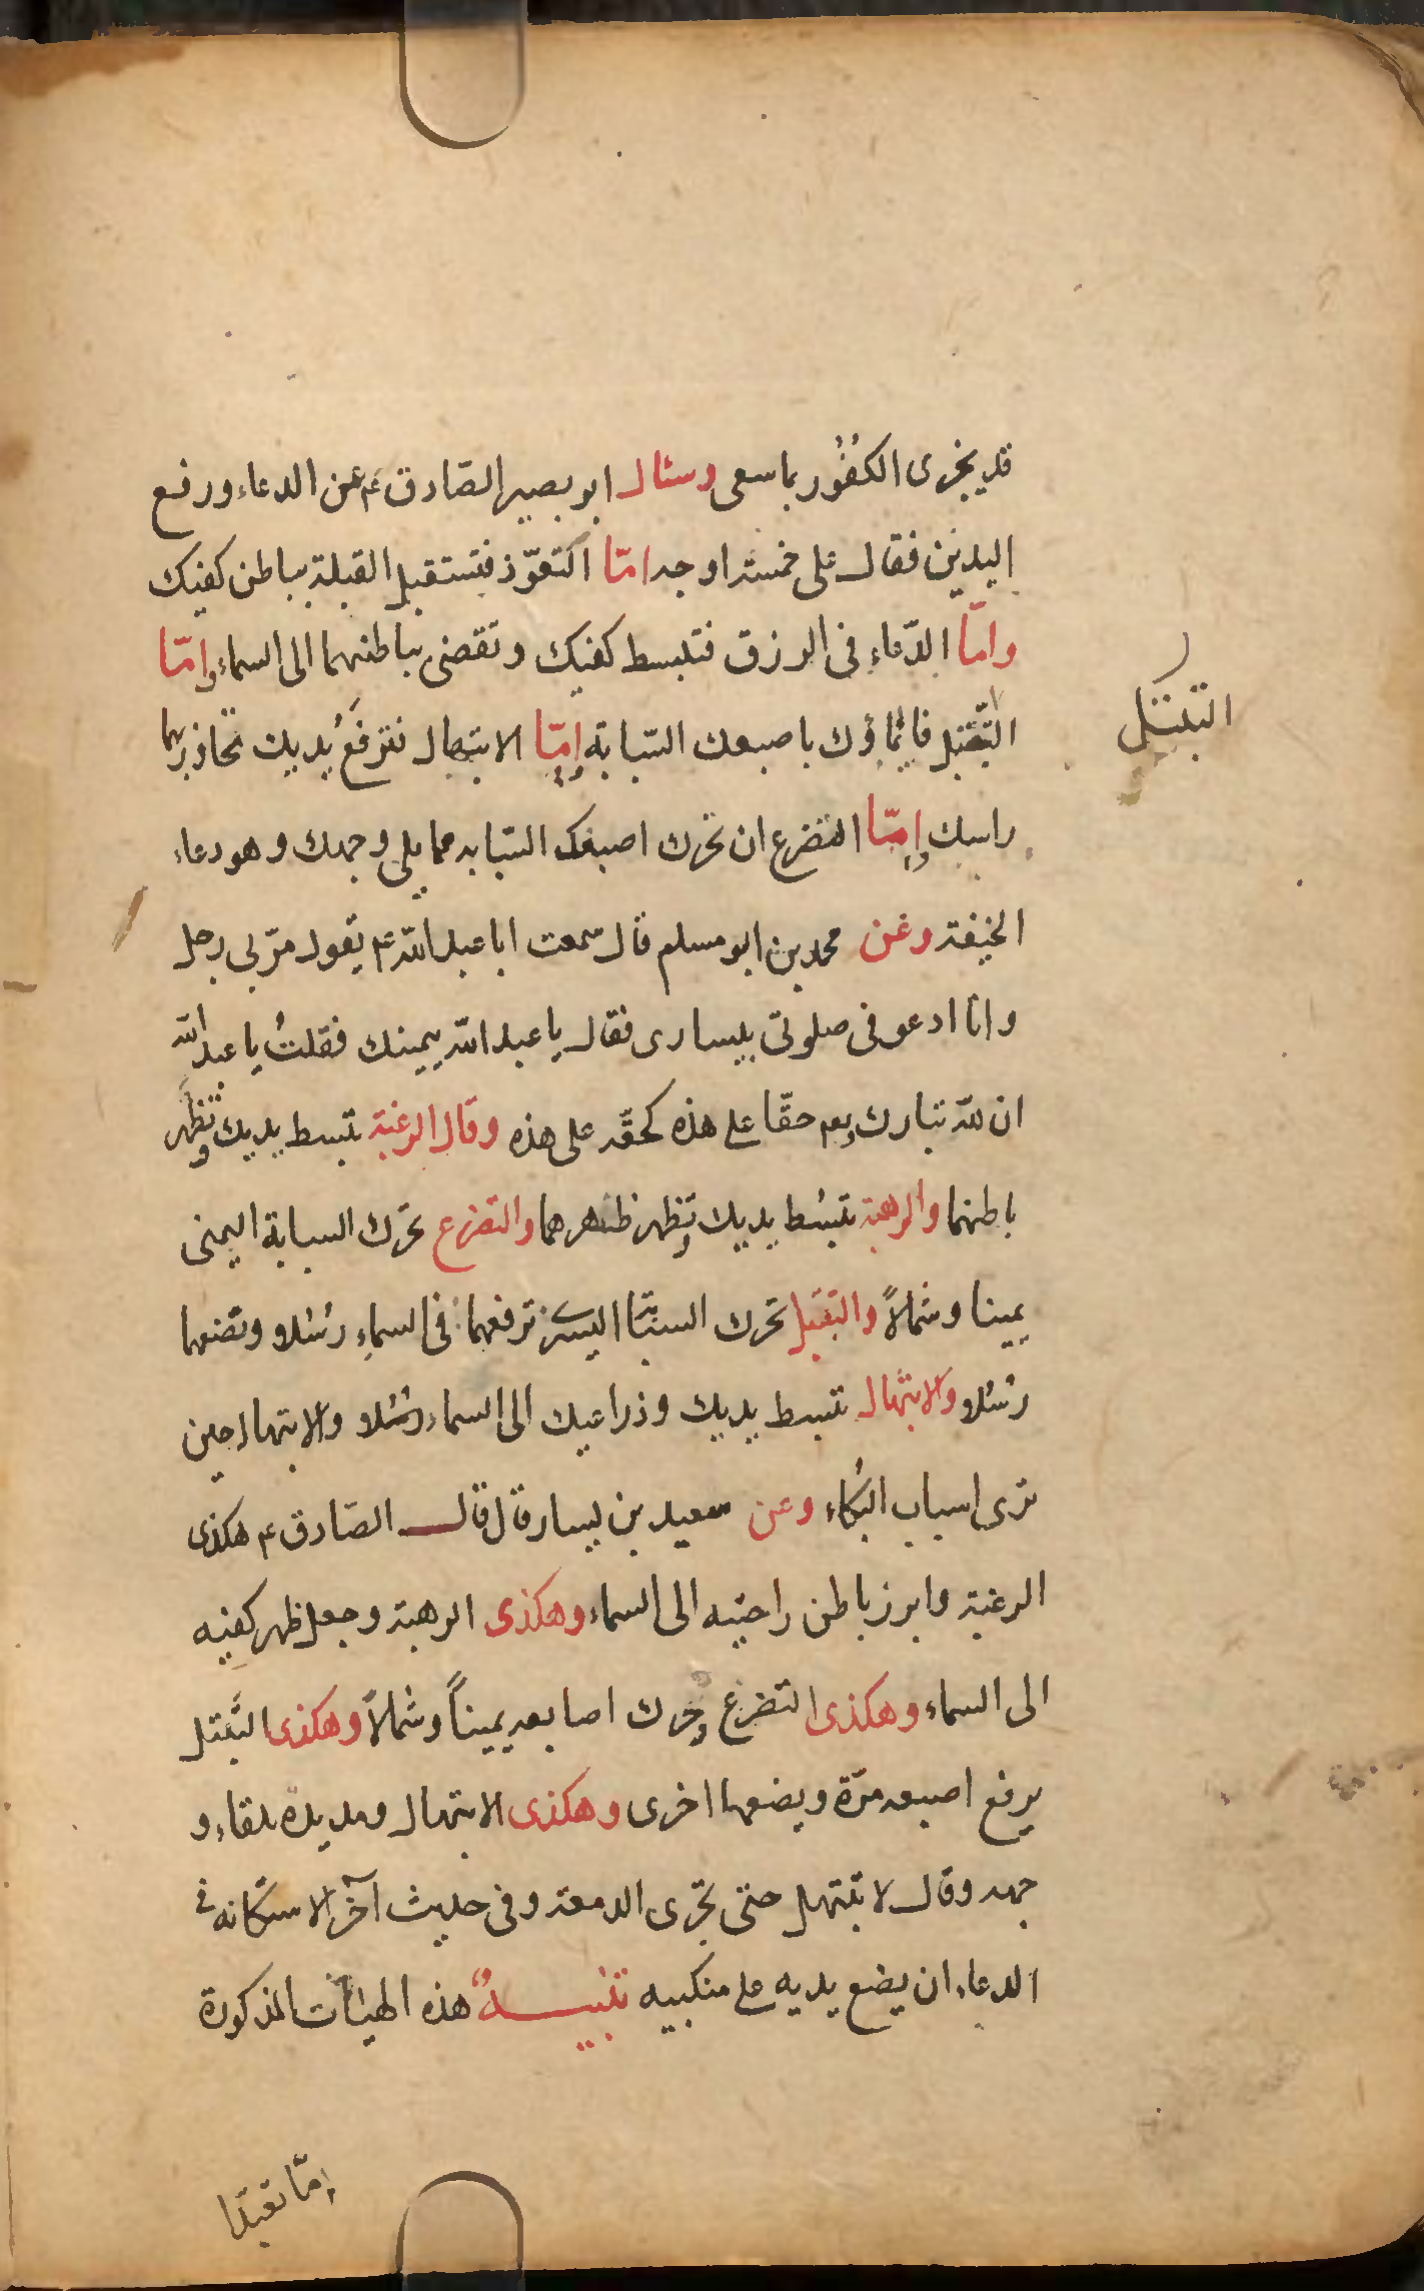 قد يجزى الكفُور بما سعى وسئال ابو بصير الصّادق ع عن الدعاء ورفع
اليدين فقال على خمسة اوجه امّا التعوّذ فتستقبل القبلة بباطن كفيك
وامّا الدّعاء فى الرزق فتبسط كفيك وتقضى بباطنهما الى السماء وامّا
التّقبّل فائماؤك باصبعك السّبابة وامّا الابتهال فترفعُ يديك تحاذ بهما
راسك وامّا التضرع ان تحرك اصبعك السّبابه مما يلى وجهك وهو دعاء
الخيفة وعن محمد بن ابو مسلم قال سمعت ابا عبد الله ع يقول مرّ بى رجل
وانا ادعو فى صلوتى بيسارى فقال يا عبد الله بيمينك فقلتُ يا عبد الله
ان لله تبارك وتعم حقّا على هذه كحقّه على هذه وقال الرغبة تبسط يديك وتظهر
باطنهما والرهبة تبسُط يديك وتظهر ظهرهما والتضرع تحرّك السبابة اليمنى
يمينا وشمالاً والتبتل تحرك السبّابة اليسرى ترفعهما فى السماء رسْلا وتضعها
رسْلا والابتهال تبسط يديك وذراعيك الى السماء رسْلا والابتهال حين
ترى اسباب البُكاء وعن سعيد بن يسار قال قال الصّادق ع هكذى
الرغبة وابرز باطن راحتيه الى السماء وهكذى الرهبة وجعل ظهر كفيه
الى السماء وهكذى التضرع وحرك اصابعه يميناً وشمالاً وهكذى التبتل
يرفع اصبعه مرّة ويضعها اخرى وهكذى الابتهال ومد يده تلقاء و
جهه وقال لا تبتهل حتى تجرى الدمعة وفى حديث آخر الاستكانه فى
الدعاء ان يضع يديه على منكبيه تنبيــهٌ هذه الهيئات المذكورة
التبتل
إمّا تعبدا